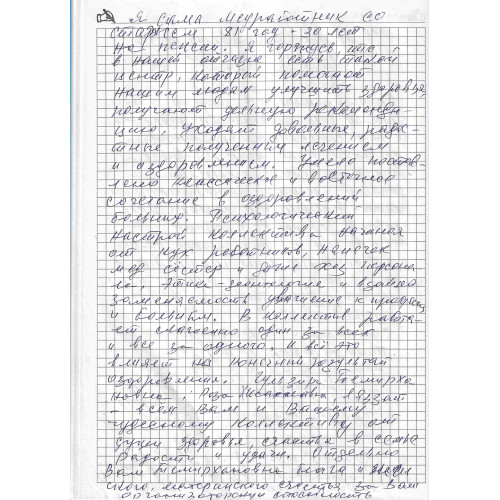 Я сама медработник со
стажем 31 год - 20 лет
на пенсии. Я горжусь, что
в нашей отчизне есть такой
центр, который помогает
нашим людям улучшить здоровья,
получают дельную рекоменда-
цию, уходят довольные, радос-
тные полученным лечением
и оздоровлением. Умело постав-
лено классическое и восточное
сочетание в оздоровлений
больных. Психологический
настрой коллектива начиная
от кух работников, нянечек
мед сёстер и другие хоз персона-
ла, Этика - деонтология и взаимо
заменяемость уважение к
и больным. В коллективе работа-
ет слаженно один за всех
и все за одного. И всё это
влияет на конечный результат
оздоровления. Гульзира Темирха
новна, Роза
- всем Вам и Вашему
чудесному коллективу от
души здоровья, счастья в семье
радости и удачи. Отдельно
Вам Темирхановна блага и
ского, материнского счастья за Ваш
организаторскую способность